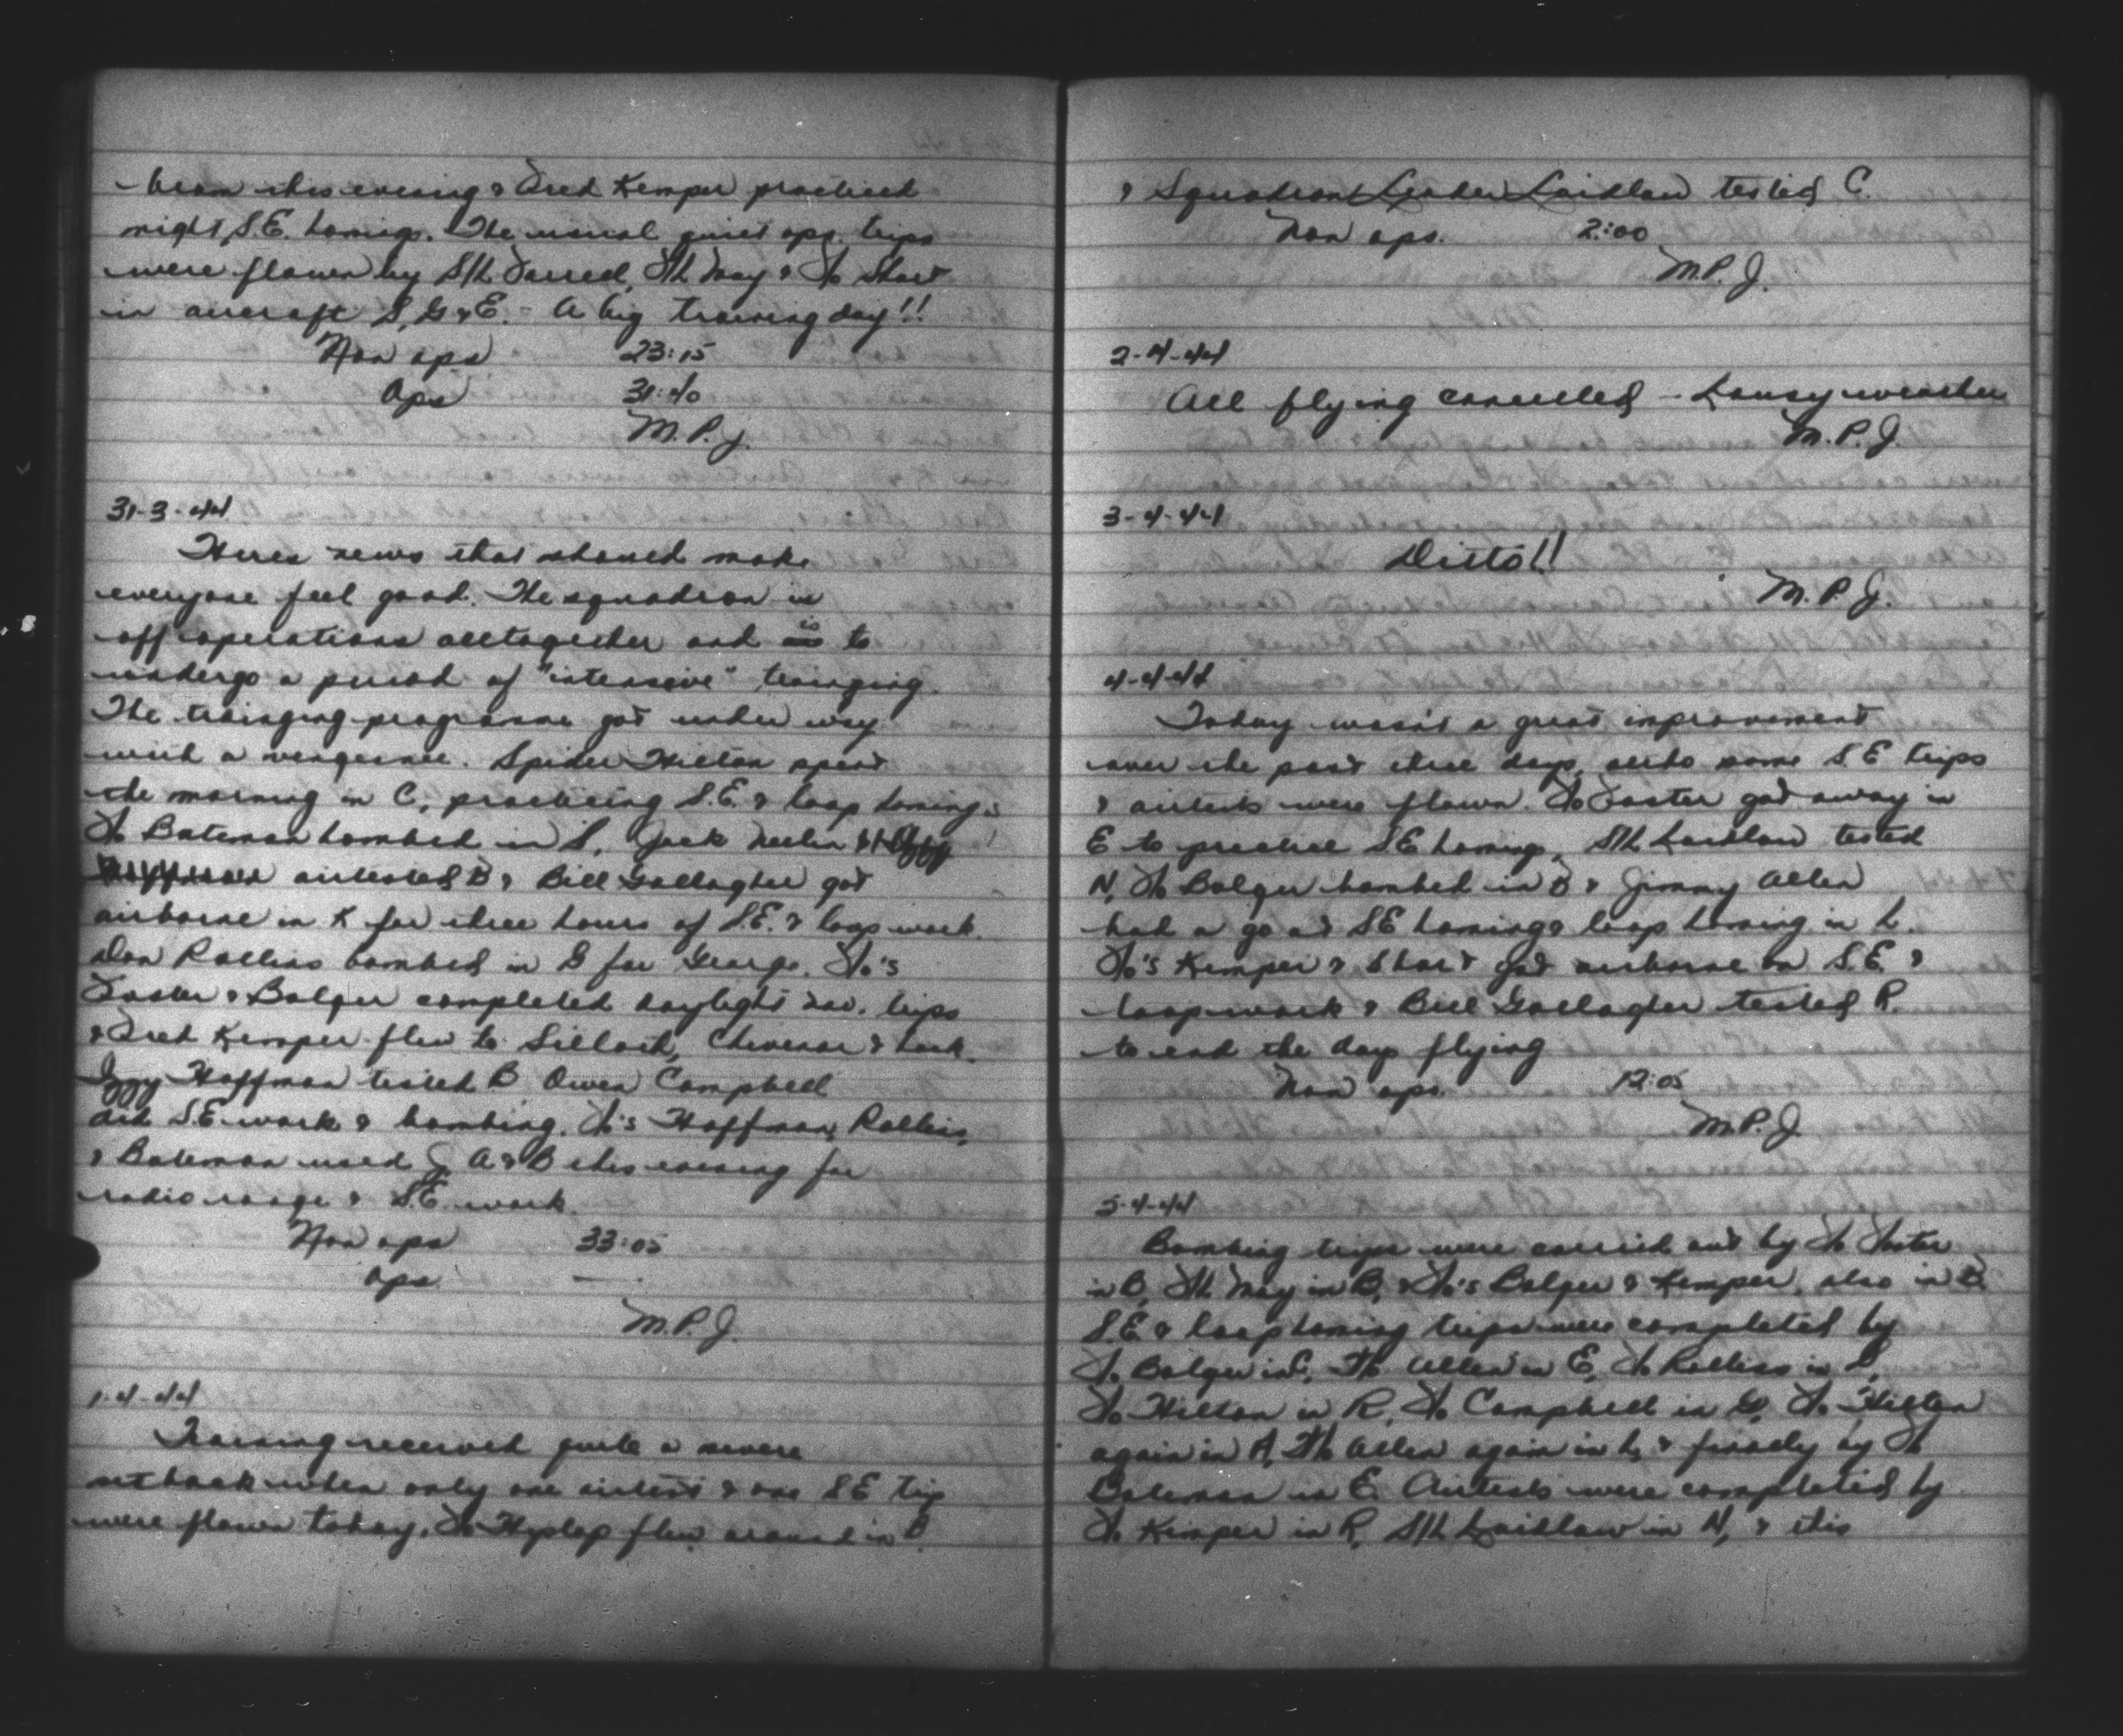 beam this evening & Fred Kemper practiced
night S.E. homings. The usual quiet ops. trips
were flown by S/L Farrell, F/L May & F/O Short
in aircraft S, G & E. - A big training day!!
Non ops 23:15
Ops 31:40
M.P.J.
31-3-44
Heres news that should make
everyone feel good. The squadron is
off operations alltogether and is to
undergo a period of "intensive" training.
The training programme got under way
with a vengeance. Spider Hilton spent
the morning in C, practicing S.E. & loop homings
F/O Bateman bombed in S, Jack Neelin
airtested B & Bill Gallagher got
airborne in K for three hours of S.E. & loop work.
Don Rollins bombed in G for George. F/O's
Foster & Bolger completed daylight nav. trips
& Fred Kemper flew to Silloth, Chivenor & back.
Iggy Hoffman tested B Owen Campbell
did S.E. work & bombing. F/O's Hoffman, Rollins,
& Bateman used G A & B this evening for
radio range & S.E. work.
Non ops 33:05
Ops —
M.P.J.
1-4-44
Training received quite a severe
setback when only one airtest & one SE trip
were flown today. F/O Hyslop flew around in B
& Squadron Leader Laidlaw tested C.
Non ops. 2:00
M.P.J.
2-4-44
All flying cancelled - Lousy weather
M.P.J.
3-4-44
Ditto!!
M.P.J.
4-4-44
Today wasn't a great improvement
over the past three days, altho some S.E trips
& airtests were flown. F/O Foster got away in
E to practice SE homings, S/L Laidlaw tested
N, F/O Bolger bombed in B & Jimmy Allen
had a go at SE homing & loop homing in L.
F/O's Kemper & Short got airborne on S.E. &
loop work & Bill Gallagher tested R.
to end the days flying
Non ops. 12:05
M.P.J.
5-4-44
Bombing trips were carried out by F/O Foster
in B, F/L May in B, & F/O's Bolger & Kemper, also in B
S.E. & loop homing trips were completed by
F/O Bolger in C, F/O Allen in E, F/O Rollins in
F/O Hilton in R, F/O Campbell in G, F/O Hilton
again in A, F/O Allen again in L, & finally by F/O
Bateman in E. Airtests were completed by
F/O Kemper in R, S/L Laidlaw in N, & this